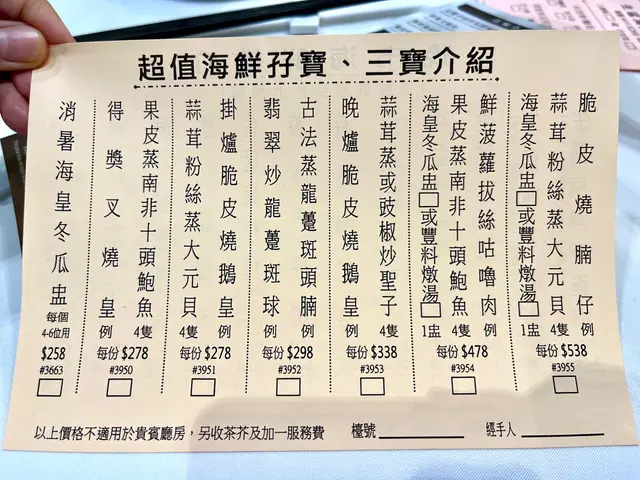 超值海鮮孖寶、三寶介紹
脆皮燒腩仔 例
蒜茸粉絲蒸大元貝 4隻
海皇冬瓜盅□或豐料燉湯□ 1盅
每份 $538
#3955
鮮菠蘿拔絲咕嚕肉 例
果皮蒸南非十頭鮑魚 4隻
海皇冬瓜盅□或豐料燉湯□ 1盅
每份 $478
#3954
蒜茸蒸或豉椒炒聖子 4隻
晚爐脆皮燒鵝皇 例
每份 $338
#3953
古法蒸龍躉斑頭腩 例
翡翠炒龍躉斑球 例
每份 $298
#3952
掛爐脆皮燒鵝皇 例
蒜茸粉絲蒸大元貝 4隻
每份 $278
#3951
果皮蒸南非十頭鮑魚 4隻
得獎叉燒皇 例
每份 $278
#3950
消暑海皇冬瓜盅
每個
4-6位用
$258
#3663
以上價格不適用於貴賓廳房，另收茶芥及加一服務費 檯號 經手人